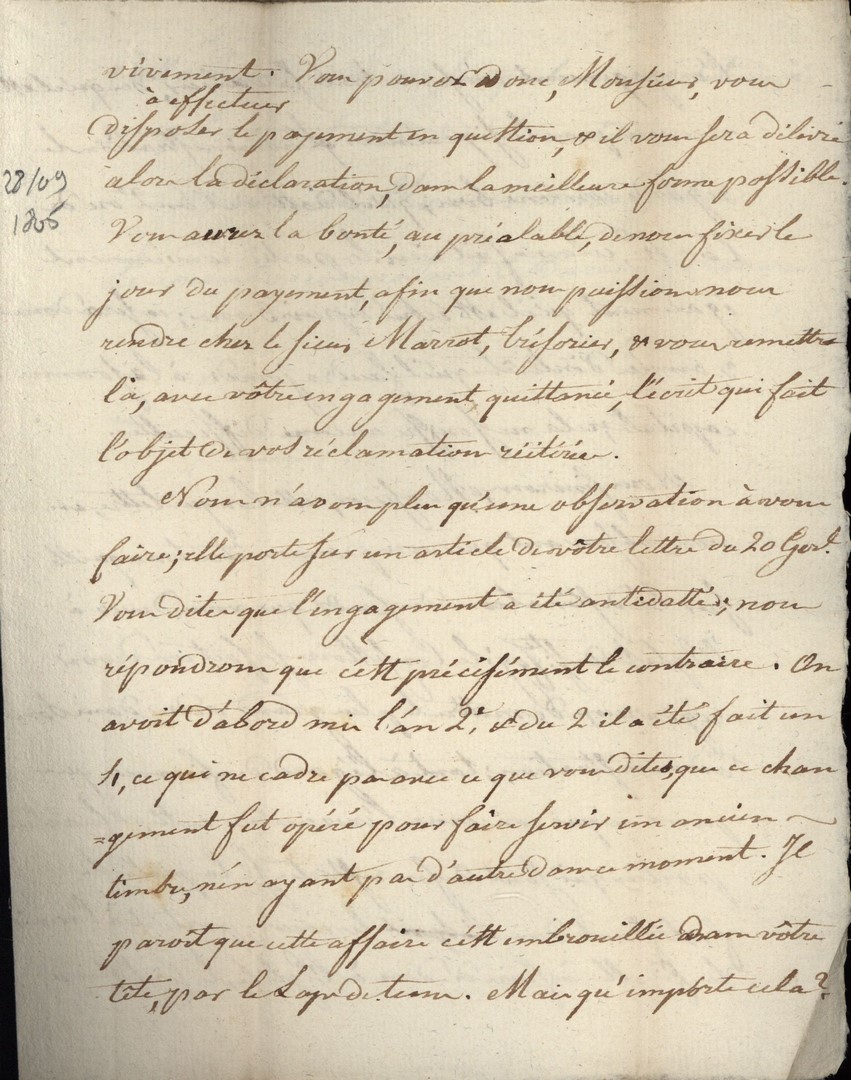 vivement. Vous pouvez donc, Monsieur, vous
à effectuer
disposer le payement en question, & il vous sera délivré
28/09
alors la déclaration, dans la meilleure forme possible.
1805
Vous aurez la bonté, au préalable, de nous fixer le
jour du payement, afin que nous puissions nous
rendre chez le sieur Marrot, trésorier, & vous remettre
là, avec vôtre engagement quittancé, l'écrit qui fait
l'objet de vos réclamations réitérées.
Nous n'avons plus qu'une observation à vous
faire; elle porte sur un article de vôtre lettre du 20 Ger.l
Vous dites que l'engagement a été antidatté; nous
répondrons que c'est précisément le contraire. On
avoit d'abord mis l'an 2e, & du 2 il a été fait un
4, ce qui ne cadre pas avec ce que vous dites, que ce chan
=gement fut opéré pour faire servir un ancien
timbre, n'en ayant pas d'autre dans ce moment. Il
paroît que cette affaire s'est embrouillée dans vôtre
tête, par le Laps de tems. Mais qu'importe cela?